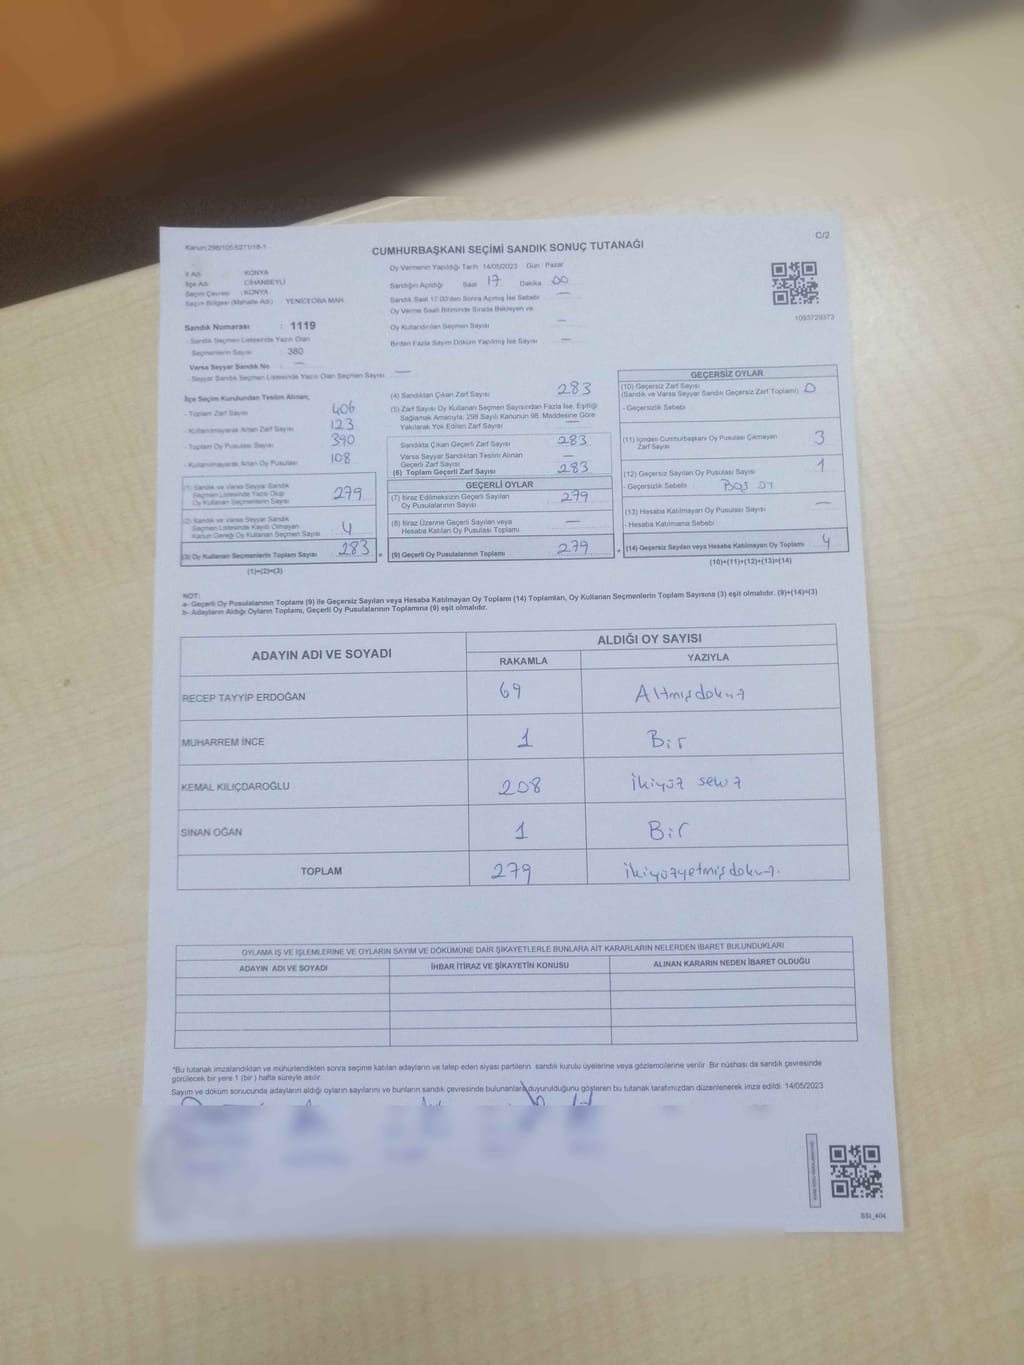 Kanun:298/105 6271/18-1
C/2
CUMHURBAŞKANI SEÇİMİ SANDIK SONUÇ TUTANAĞI
İl Adı : KONYA
İlçe Adı : CİHANBEYLİ
Seçim Çevresi : KONYA
Seçim Bölgesi (Mahalle Adı) : YENİCEOBA MAH.
Oy Vermenin Yapıldığı Tarih :14/05/2023 Gün : Pazar
Sandığın Açıldığı Saat 17 Dakika 00
Sandık Saat 17:00'den Sonra Açılmış İse Sebebi —
Oy Verme Saati Bitiminde Sırada Bekleyen ve
Oy Kullandırılan Seçmen Sayısı —
Birden Fazla Sayım Döküm Yapılmış İse Sayısı —
1093729373
Sandık Numarası : 1119
- Sandık Seçmen Listesinde Yazılı Olan
Seçmenlerin Sayısı : 380
Varsa Seyyar Sandık No : —
- Seyyar Sandık Seçmen Listesinde Yazılı Olan Seçmen Sayısı : —
İlçe Seçim Kurulundan Teslim Alınan;
- Toplam Zarf Sayısı 406
- Kullanılmayarak Artan Zarf Sayısı 123
- Toplam Oy Pusulası Sayısı 390
- Kullanılmayarak Artan Oy Pusulası 108
(1) Sandık ve Varsa Seyyar Sandık
Seçmen Listesinde Yazılı Olup
Oy Kullanan Seçmenlerin Sayısı 279
(2) Sandık ve Varsa Seyyar Sandık
Seçmen Listesinde Kayıtlı Olmayan
Kanun Gereği Oy Kullanan Seçmen Sayısı 4
(3) Oy Kullanan Seçmenlerin Toplam Sayısı 283 =
(1)+(2)=(3)
(4) Sandıktan Çıkan Zarf Sayısı 283
(5) Zarf Sayısı Oy Kullanan Seçmen Sayısından Fazla İse, Eşitliği
Sağlamak Amacıyla; 298 Sayılı Kanunun 98. Maddesine Göre
Yakılarak Yok Edilen Zarf Sayısı —
Sandıkta Çıkan Geçerli Zarf Sayısı 283
Varsa Seyyar Sandıktan Teslim Alınan
Geçerli Zarf Sayısı —
(6) Toplam Geçerli Zarf Sayısı 283
GEÇERLİ OYLAR
(7) İtiraz Edilmeksizin Geçerli Sayılan
Oy Pusulası Sayısı 279
(8) İtiraz Üzerine Geçerli Sayılan veya
Hesaba Katılan Oy Pusulası Toplamı —
(9) Geçerli Oy Pusulalarının Toplamı 279 +
GEÇERSİZ OYLAR
(10) Geçersiz Zarf Sayısı
(Sandık ve Varsa Seyyar Sandık Geçersiz Zarf Toplamı) 0
- Geçersizlik Sebebi
(11) İçinden Cumhurbaşkanı Oy Pusulası Çıkmayan
Zarf Sayısı 3
(12) Geçersiz Sayılan Oy Pusulası Sayısı 1
- Geçersizlik Sebebi : Boş oy
(13) Hesaba Katılmayan Oy Pusulası Sayısı —
- Hesaba Katılmama Sebebi
(14) Geçersiz Sayılan veya Hesaba Katılmayan Oy Toplamı 4
(10)+(11)+(12)+(13)=(14)
NOT:
a- Geçerli Oy Pusulalarının Toplamı (9) ile Geçersiz Sayılan veya Hesaba Katılmayan Oy Toplamı (14) Toplamları, Oy Kullanan Seçmenlerin Toplam Sayısına (3) eşit olmalıdır. (9)+(14)=(3)
b- Adayların Aldığı Oyların Toplamı, Geçerli Oy Pusulalarının Toplamına (9) eşit olmalıdır.
ADAYIN ADI VE SOYADI
ALDIĞI OY SAYISI
RAKAMLA YAZIYLA
RECEP TAYYİP ERDOĞAN 69 Altmışdokuz
MUHARREM İNCE 1 Bir
KEMAL KILIÇDAROĞLU 208 İkiyüz sekiz
SİNAN OĞAN 1 Bir
TOPLAM 279 ikiyüzyetmişdokuz.
OYLAMA İŞ VE İŞLEMLERİNE VE OYLARIN SAYIM VE DÖKÜMÜNE DAİR ŞİKAYETLERLE BUNLARA AİT KARARLARIN NELERDEN İBARET BULUNDUKLARI
ADAYIN ADI VE SOYADI İHBAR İTİRAZ VE ŞİKAYETİN KONUSU ALINAN KARARIN NEDEN İBARET OLDUĞU
*Bu tutanak imzalandıktan ve mühürlendikten sonra seçime katılan adayların ve talep eden siyasi partilerin sandık kurulu üyelerine veya gözlemcilerine verilir. Bir nüshası da sandık çevresinde
görülecek bir yere 1 (bir ) hafta süreyle asılır.
Sayım ve döküm sonucunda adayların aldığı oyların sayılarını ve bunların sandık çevresinde bulunanlara duyurulduğunu gösteren bu tutanak tarafımızdan düzenlenerek imza edildi. 14/05/2023
SSI_404